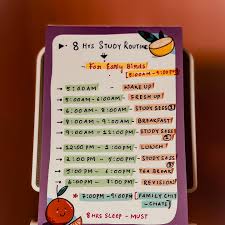 8 Hrs STUDY ROUTINE
For Early Birds
[5:00AM-9:00PM]
5:00AM → WAKE UP!
5:00AM-6:00AM → FRESH UP!
6:00AM - 8:00AM → STUDY SESS
8:00AM - 9:00AM → BREAKFAST!
9:00AM - 12:00PM → STUDY SESS
12:00PM - 1:00PM → LUNCH!
2:00PM - 5:00PM → STUDY SESS
5:00PM - 6:00PM → TEA BREAK
6:00PM - 7:00PM → REVISION!
7:00PM - 9:00PM → [FAMILY CHIT
- CHATS]
8HRS SLEEP - MUST